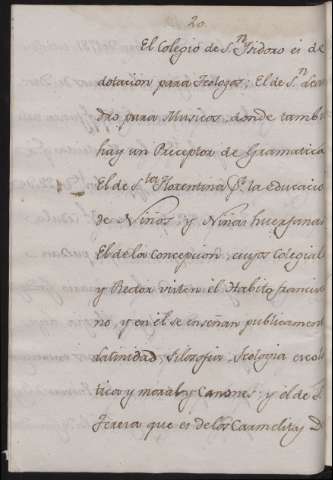 20.
El Colegio de S.n Isidoro es de
dotacion para Teologos; El de S.n Lean
dro para Musicos, donde tambi
hay un Preceptor de Gramatica
El de S.ta Florentina p.a la Educacio
de Niños, y Niñas huerfana
El de la Concepcion, cuyos Colegial
y Rector visten el Habito francisca
no, y en él se enseñan publicament
latinidad, Filosofia, Teologia escolas
tica y moral, y Canones; y el de S.
Teresa que es de los Carmelitas D